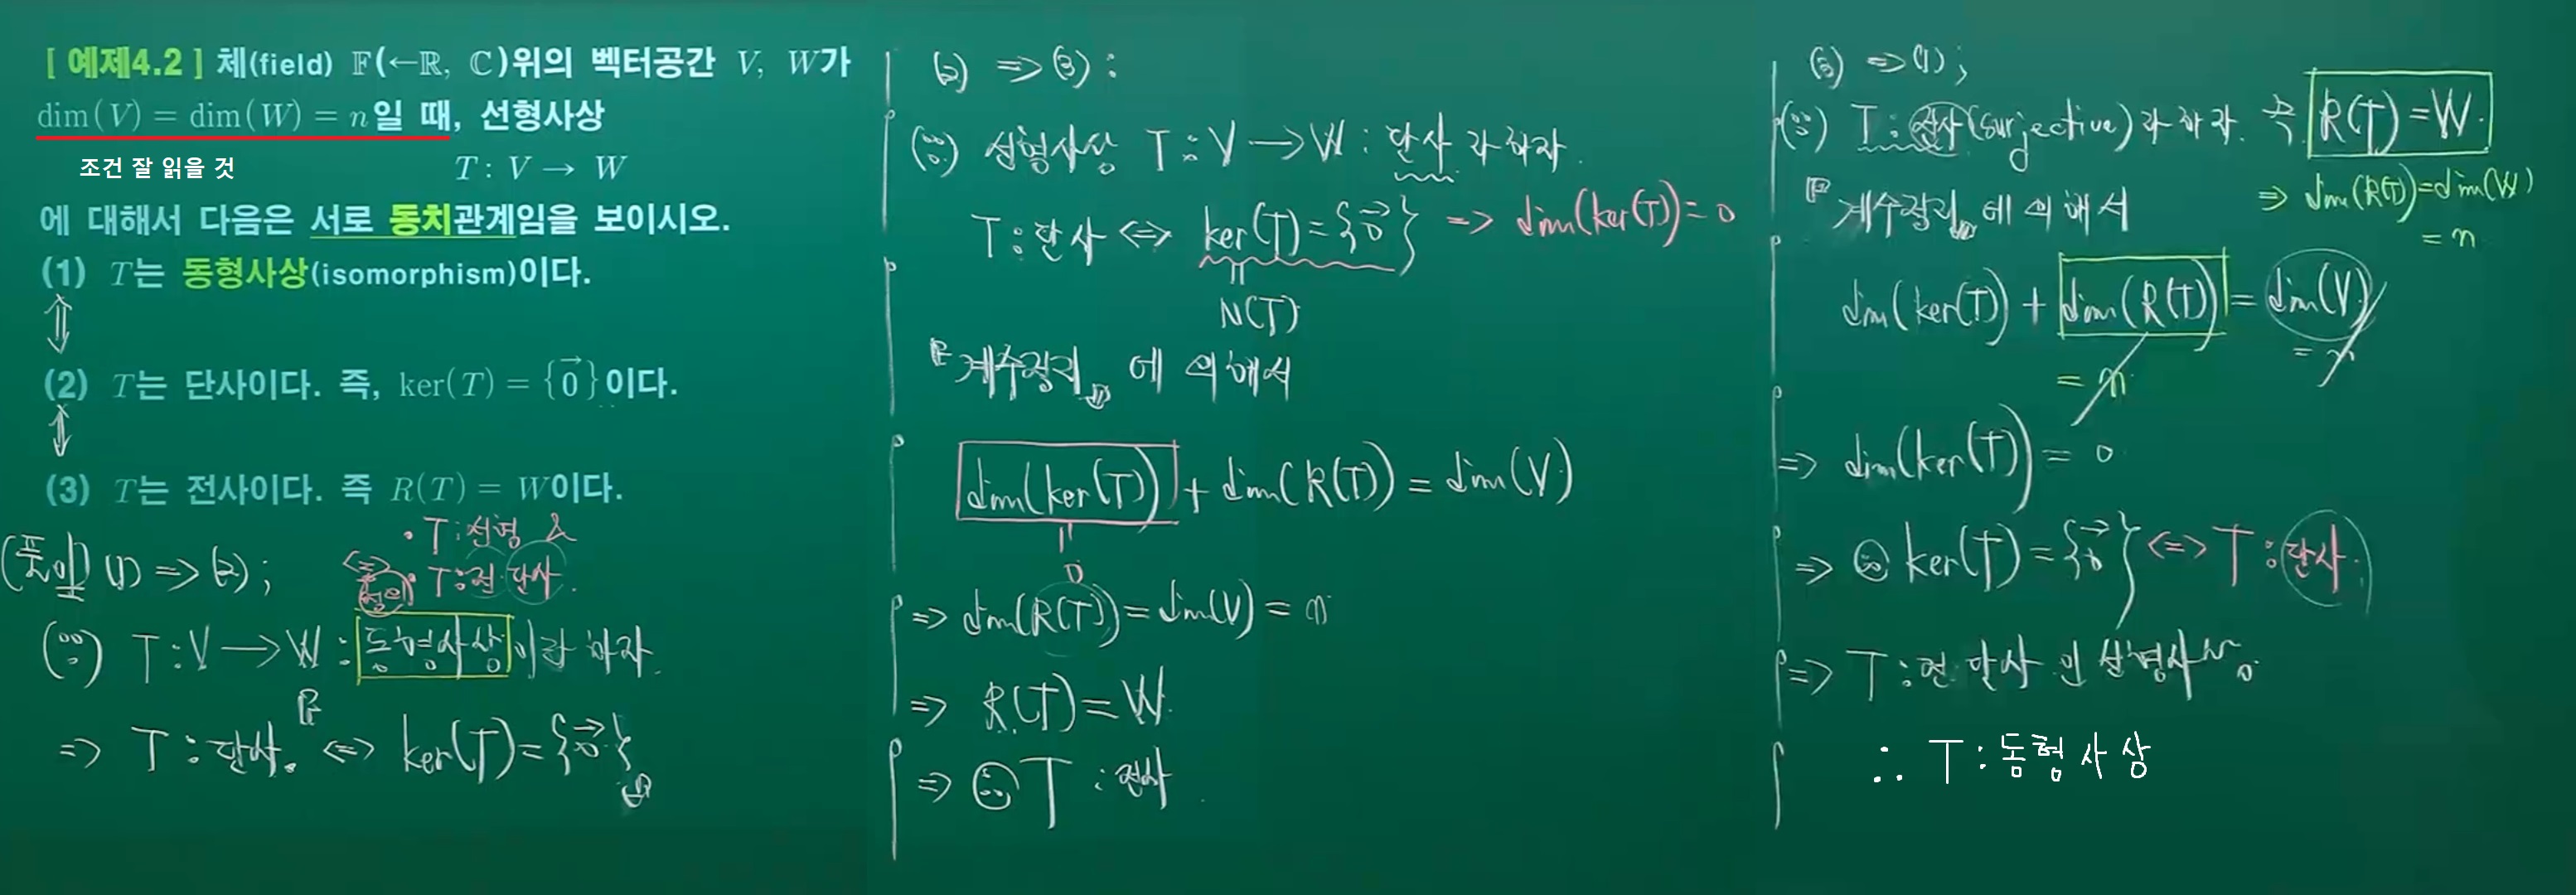 [ 예제4.2 ] 체(field) 𝔽(←ℝ, ℂ)위의 벡터공간 V, W가
dim(V) = dim(W) = n일 때, 선형사상
조건 잘 읽을 것
T : V → W
에 대해서 다음은 서로 동치관계임을 보이시오.
(1) T는 동형사상(isomorphism)이다.
⇕
(2) T는 단사이다. 즉, ker(T) = {0⃗}이다.
⇕
(3) T는 전사이다. 즉 R(T) = W이다.
(풀이) (1) => (2) ;
<=> 정의
· T : 선형 &
· T : 전단사.
(∵) T : V → W : 동형사상이라 하자.
=> T : 단사. <=> ker(T) = {0⃗}
(2) => (3) :
(∵) 선형사상 T : V → W : 단사 라 하자.
T : 단사 <=> ker(T) = {0⃗} => dim(ker(T)) = 0
||
N(T)
『계수정리』에 의해서
dim(ker(T)) + dim(R(T)) = dim(V)
||
0
=> dim(R(T)) = dim(V) = n
=> R(T) = W
=> ∴ T : 전사
(3) => (1) ;
(∵) T : 전사(surjective)라 하자. 즉 R(T) = W.
=> dim(R(T)) = dim(W)
= n
『계수정리』에 의해서
dim(ker(T)) + dim(R(T)) = dim(V)
= n = n
=> dim(ker(T)) = 0
=> ∴ ker(T) = {0⃗} <=> T : 단사.
=> T : 전단사 인 선형사상
∴ T : 동형사상